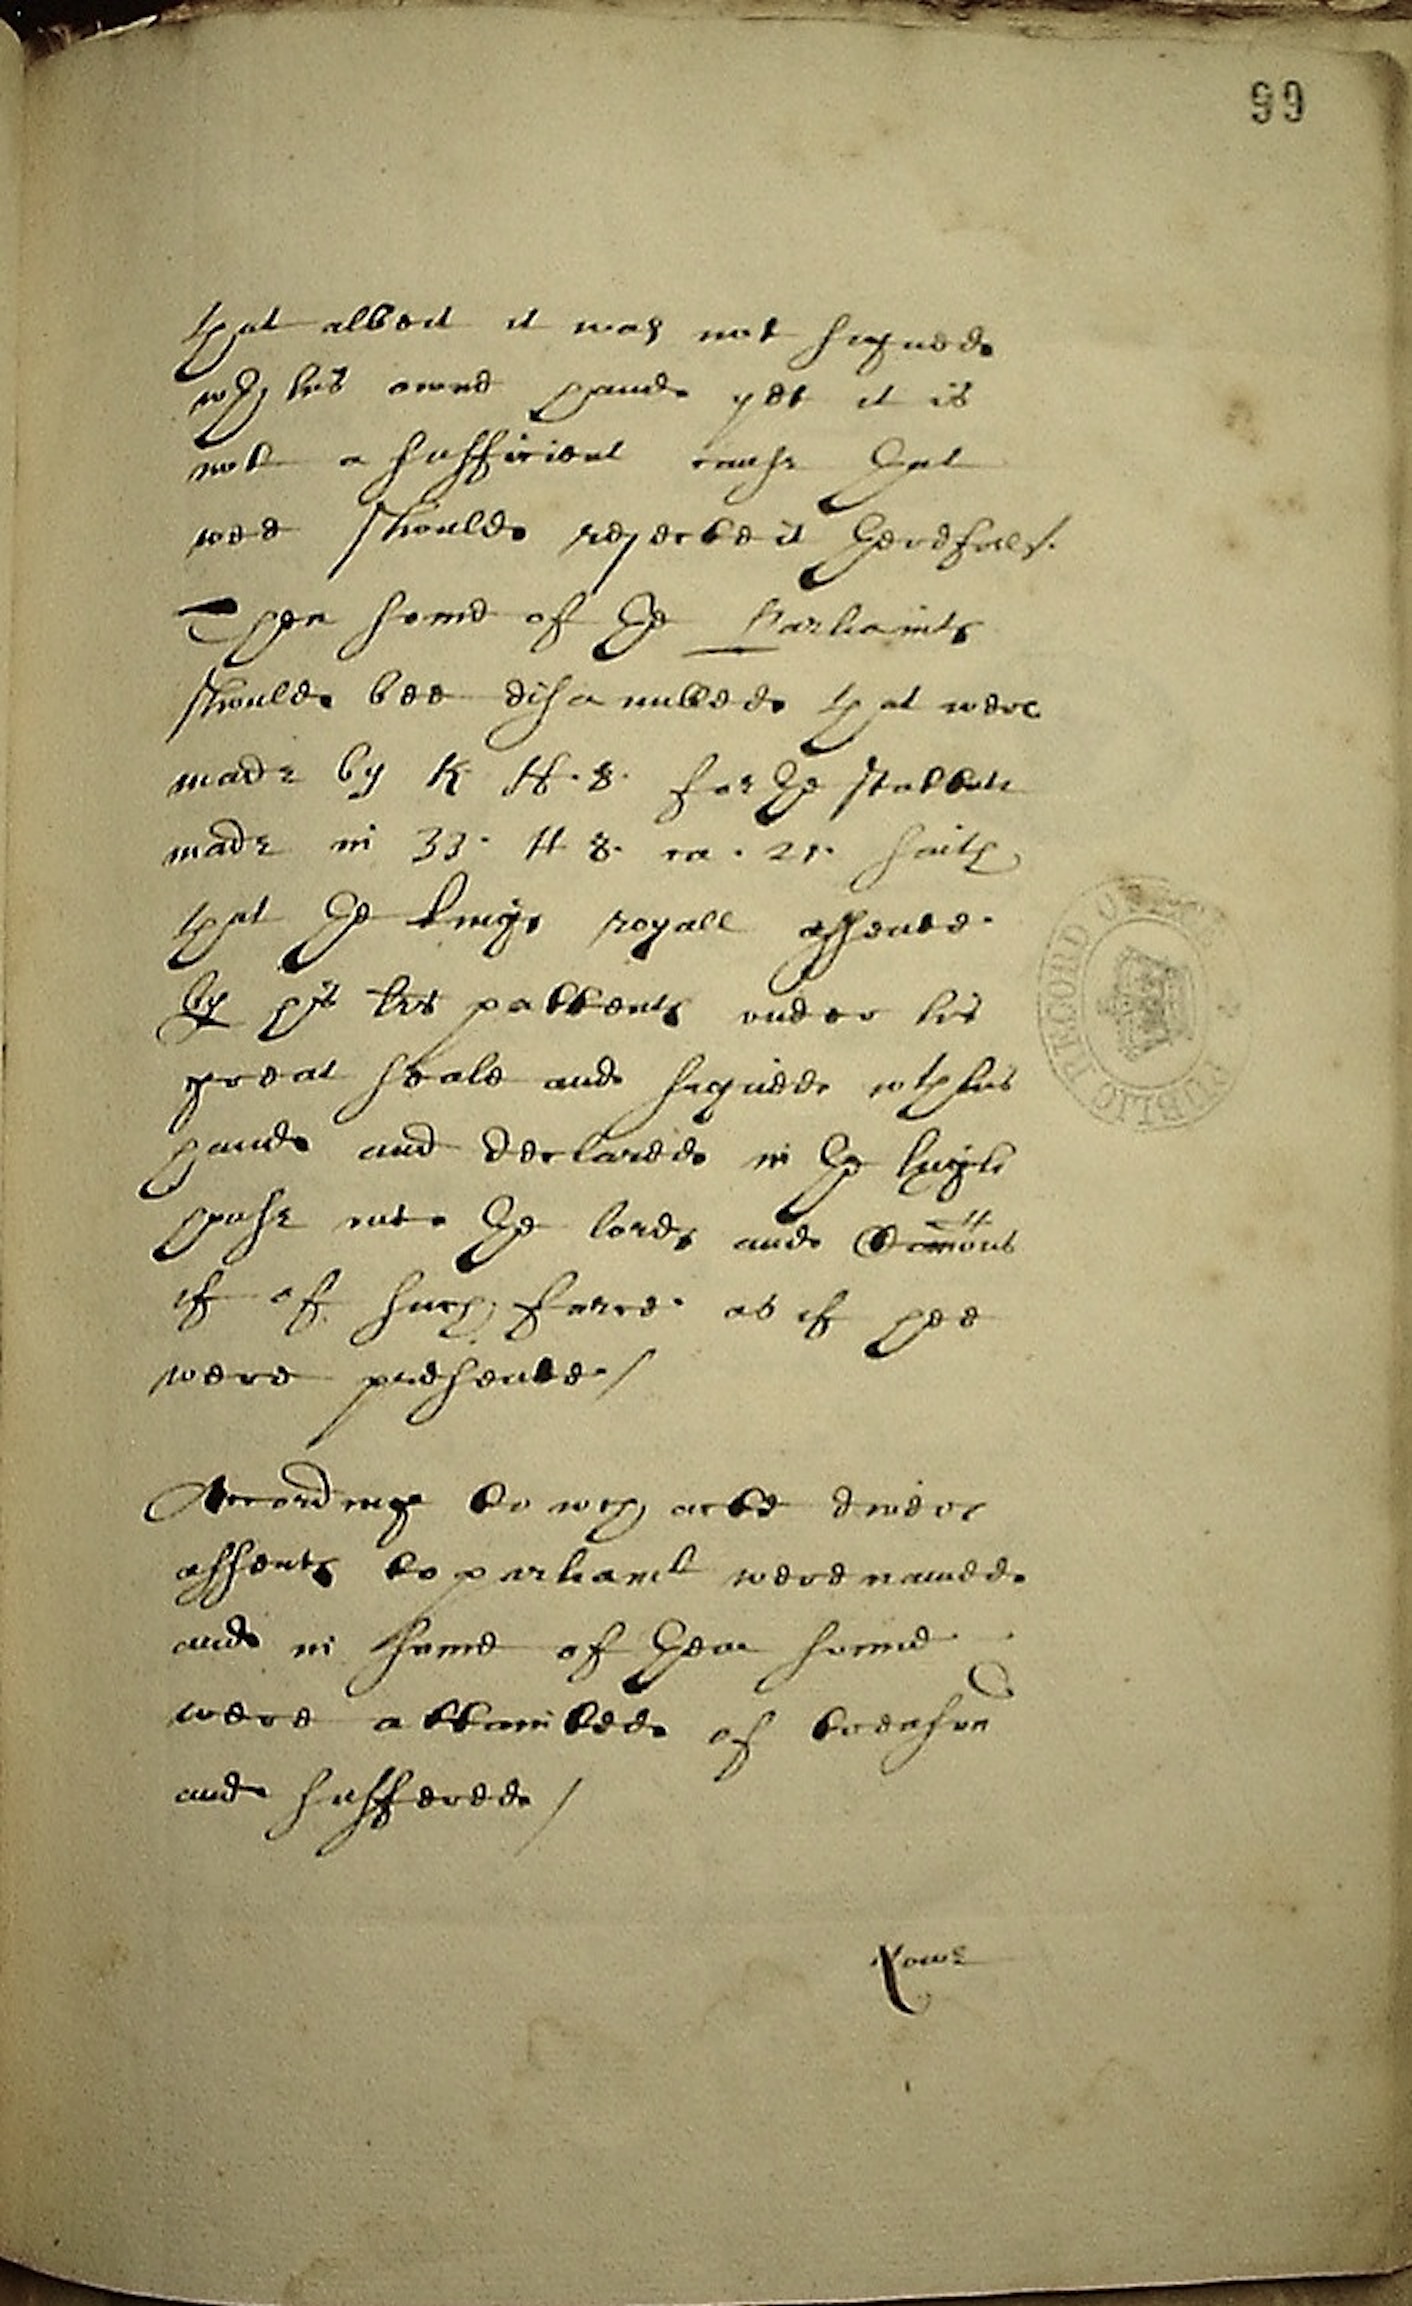 99
that albeit it was not signed
wth his owne hand yet it is
not a sufficient cause that
wee should rejecte it therefore/.
Then some of the Parliamts
should bee disanulled that were
made by K H. 8. for the statute
made in 33. H 8. ca. 21. saith
that the kings royall assente
by his lres pattents under his
great seale and signed wth his
hand and declared in the higher
house unto the lords and Comons
is of such force as if hee
were presente/
Accordinge to wch acte divers
assents to parliamt were named
and in some of them some
were attainted of treason
and suffered/
Nowe
PUBLIC RECORD OFFICE